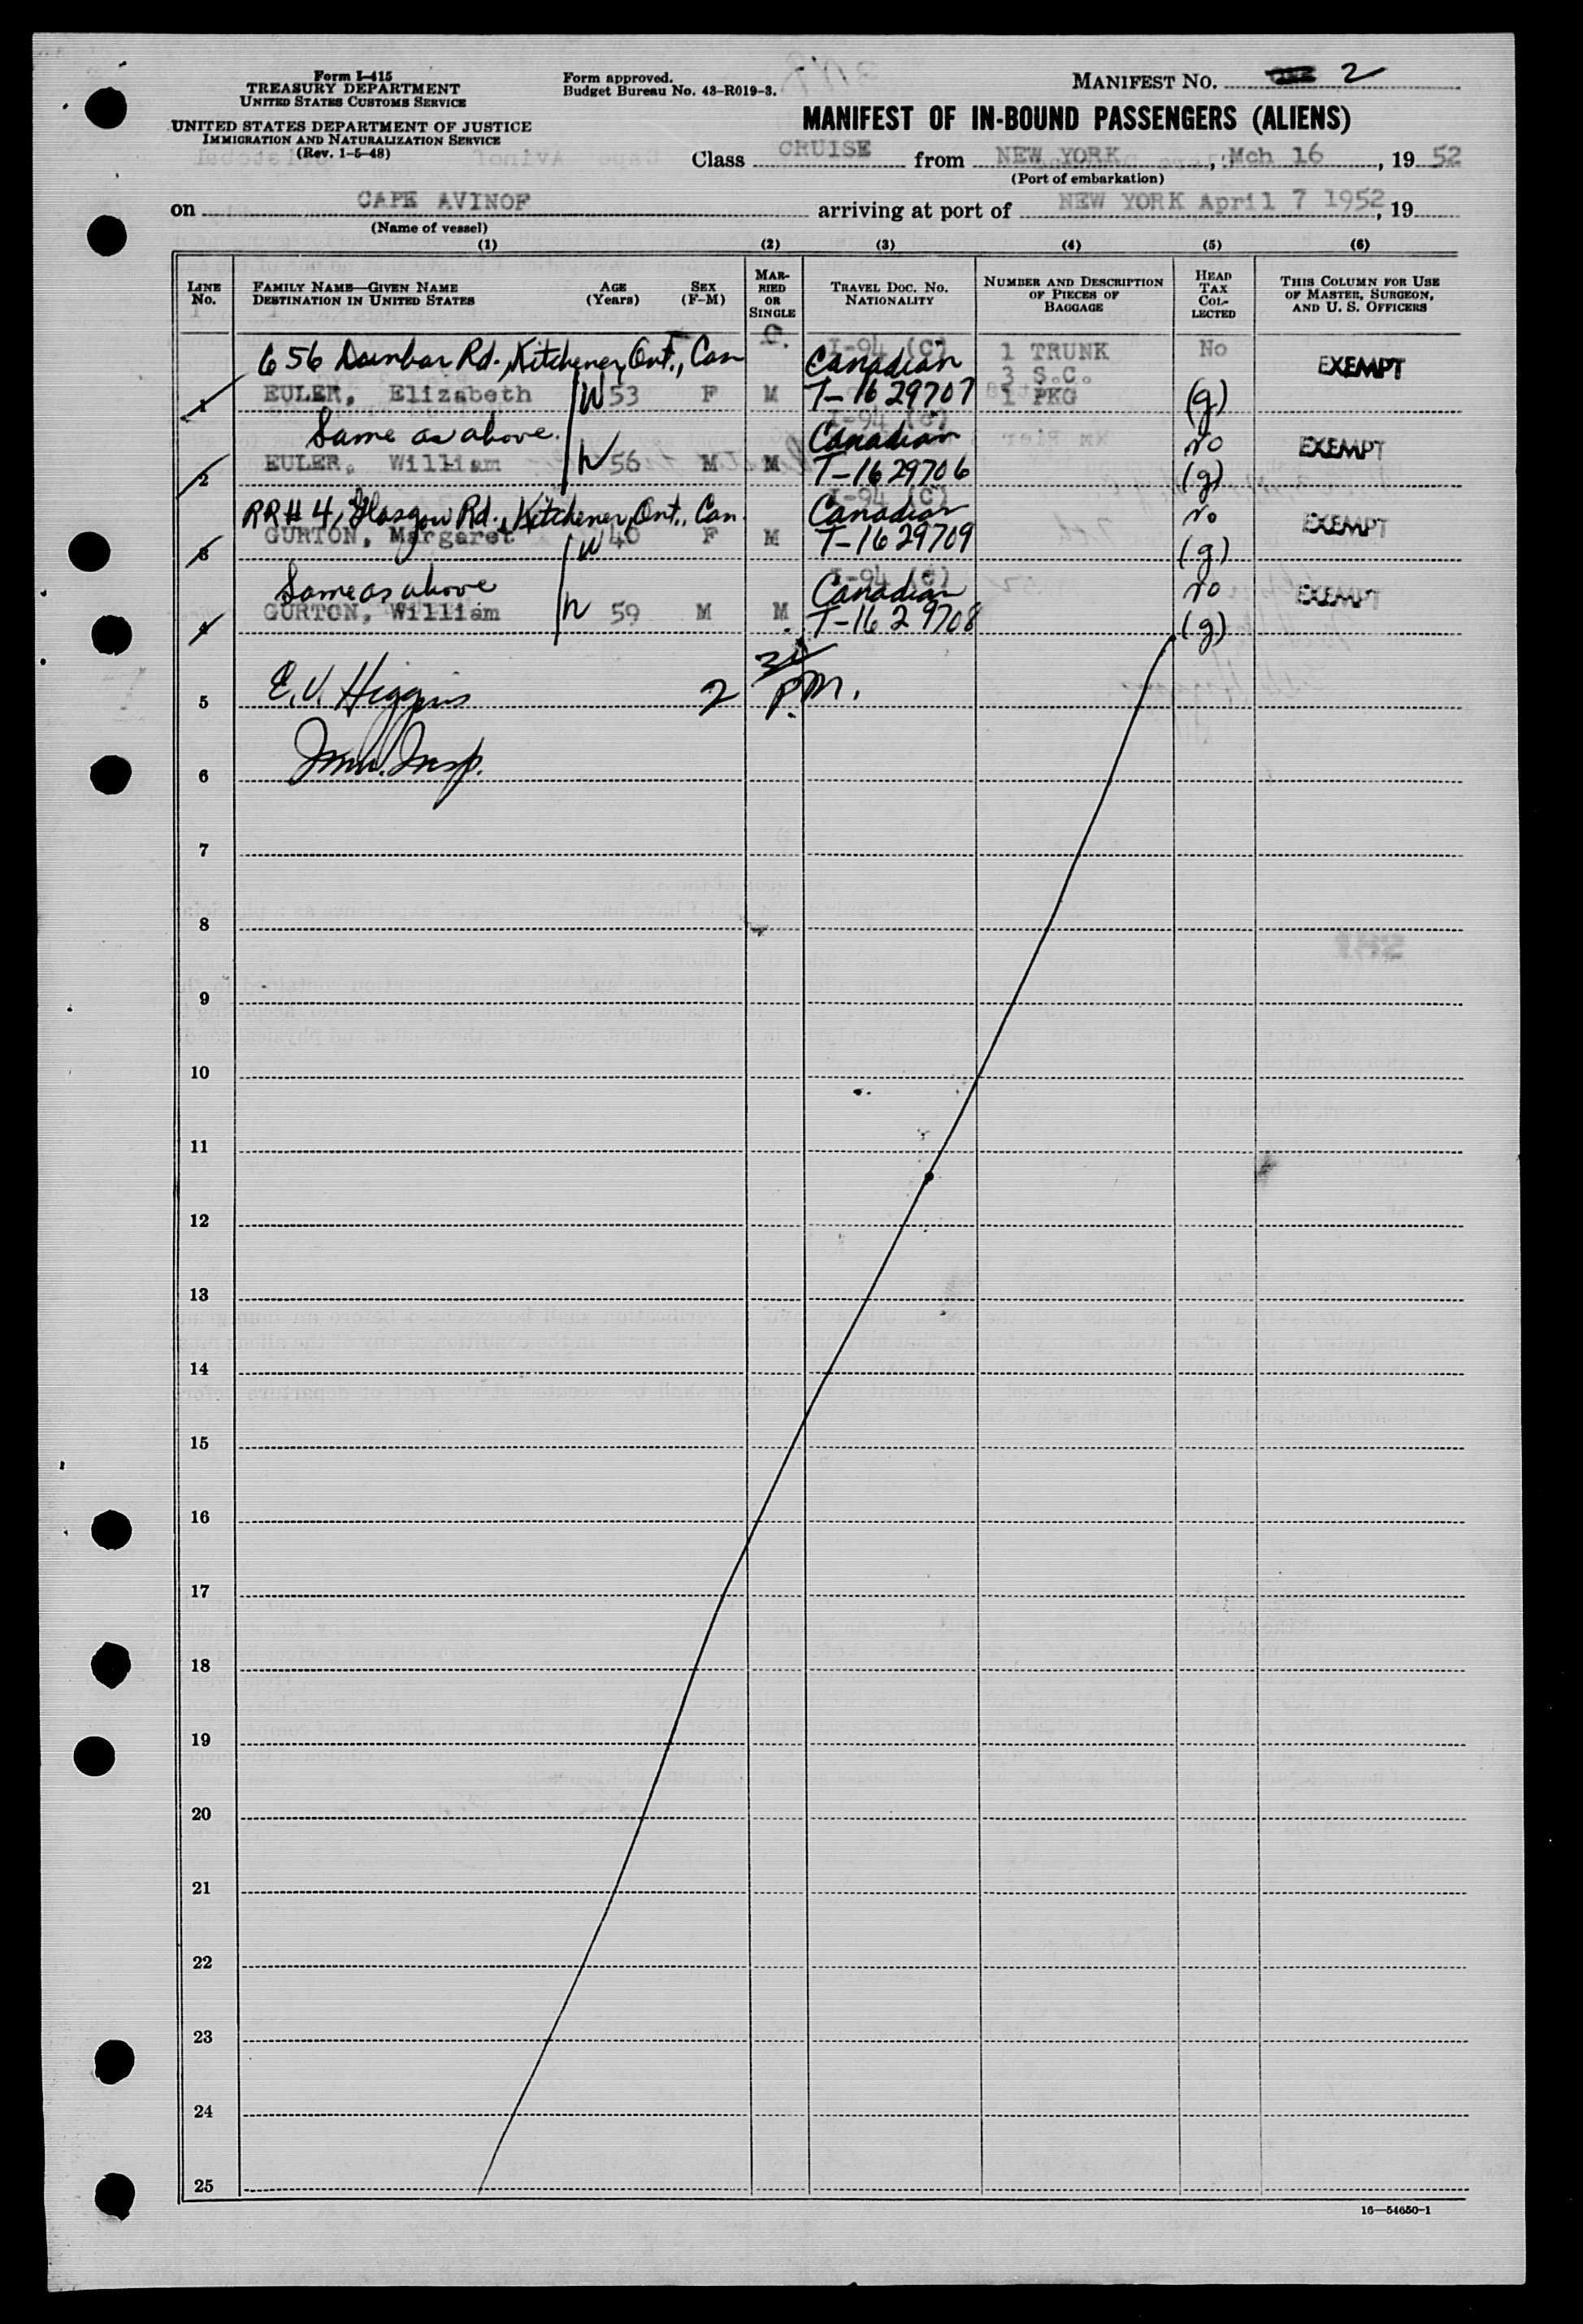 Form I-415
TREASURY DEPARTMENT
UNITED STATES CUSTOMS SERVICE
UNITED STATES DEPARTMENT OF JUSTICE
IMMIGRATION AND NATURALIZATION SERVICE
(Rev. 1-5-48)
Form approved.
Budget Bureau No. 43-R019-3.
MANIFEST NO. 2
MANIFEST OF IN-BOUND PASSENGERS (ALIENS)
Class CRUISE from NEW YORK, Mch 16, 19 52
(Port of embarkation)
on CAPE AVINOF arriving at port of NEW YORK April 7 1952, 19
(Name of vessel)
(1) (2) (3) (4) (5) (6)
LINE No.
FAMILY NAME—GIVEN NAME
DESTINATION IN UNITED STATES
AGE (Years)
SEX (F-M)
MARRIED OR SINGLE
TRAVEL DOC. NO.
NATIONALITY
NUMBER AND DESCRIPTION OF PIECES OF BAGGAGE
HEAD TAX COLLECTED
THIS COLUMN FOR USE OF MASTER, SURGEON, AND U. S. OFFICERS
656 Dunbar Rd., Kitchener, Ont., Can I-94 (C) Canadian 1 TRUNK No EXEMPT
3 S.C.
1 EULER, Elizabeth W 53 F M T-1629707 1 PKG (g)
Same as above. I-94 (C) Canadian No EXEMPT
2 EULER, William h 56 M M T-1629706 (g)
RR#4, Glasgow Rd., Kitchener, Ont., Can. I-94 (C) Canadian No EXEMPT
3 GURTON, Margaret W 40 F M T-1629709 (g)
Same as above I-94 (C) Canadian No EXEMPT
4 GURTON, William h 59 M M T-1629708 (g)
5 E.V. Higgins 2 30 P.M.
6 Imm. Insp.
7
8
9
10
11
12
13
14
15
16
17
18
19
20
21
22
23
24
25
16—54650-1